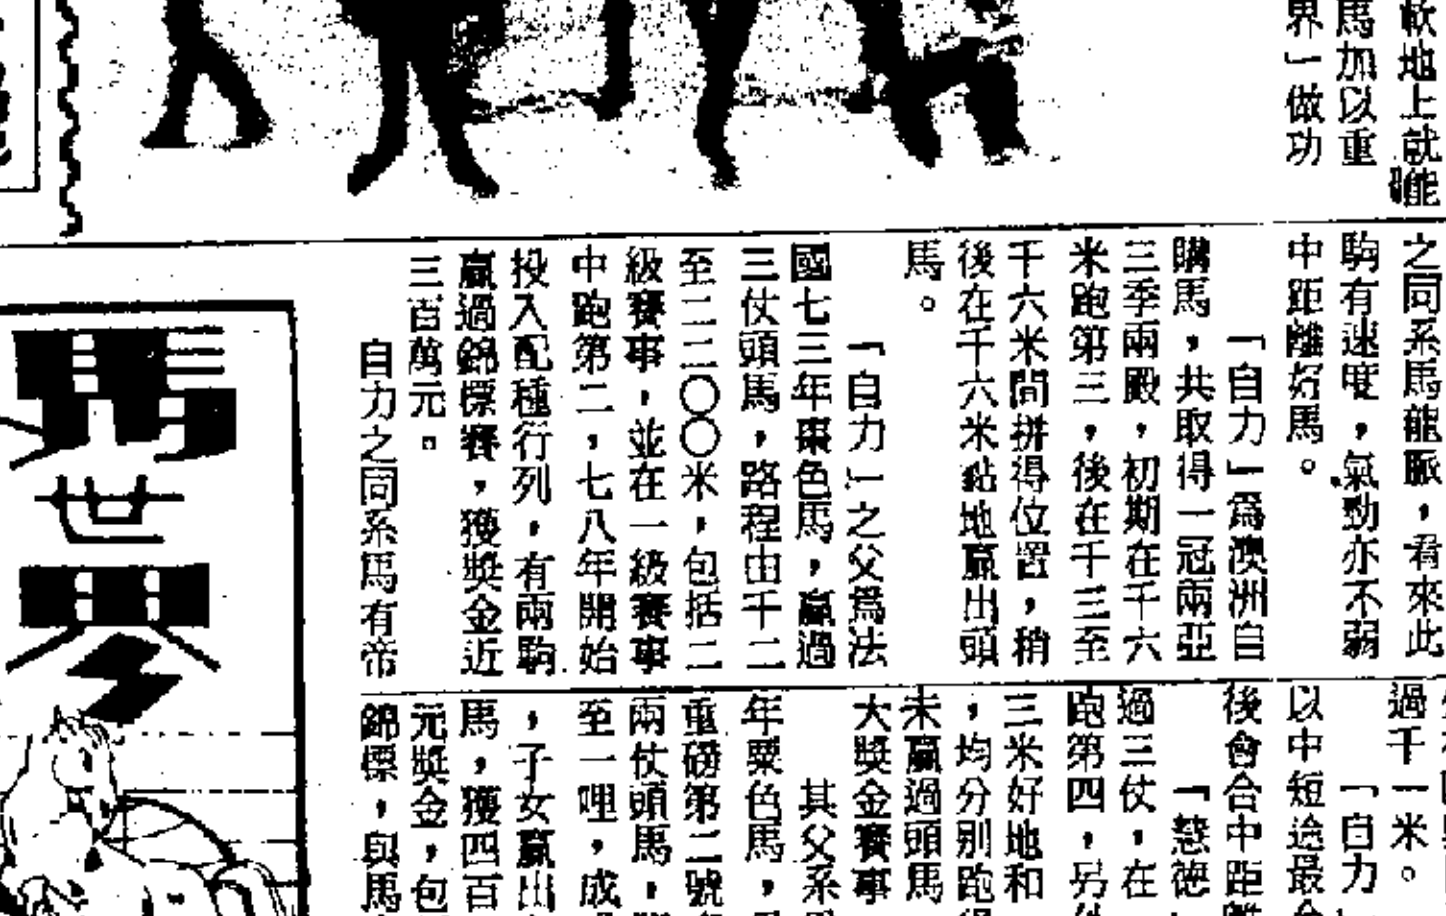 軟地上就能
馬加以重
界」做功
之同系馬龍脈，看來此
駒有速度，氣勁亦不弱
中距離好馬。
「自力」爲澳洲自
購馬，共取得一冠兩亞
三季兩殿，初期在千六
米跑第三，後在千三至
千六米間拼得位置，稍
後在千六米黏地贏出頭
馬。
「自力」之父爲法
國七三年棗色馬，贏過
三仗頭馬，路程由千二
至二二〇〇米，包括二
級賽事，並在一級賽事
中跑第二，七八年開始
投入配種行列，有兩駒
贏過錦標賽，獲獎金近
三百萬元。
自力之同系馬有帝
過千一米。
「自力
以中短途最
後會合中距
「慧德
過三仗，在
跑第四，另
三米好地和
，均分別跑
未贏過頭馬
大獎金賽事
其父系
年栗色馬，
重磅第二號
兩仗頭馬，
至一哩，成
，子女贏出
馬，獲四百
元獎金，包
錦標，與馬
馬世界